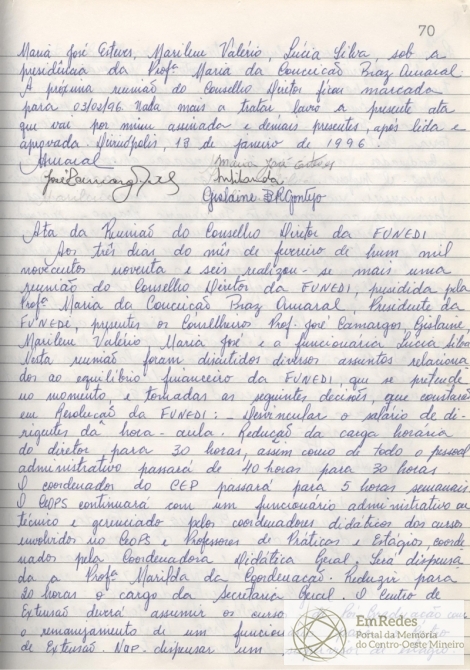 70
Maria José Esteves, Marilene Valério, Lúcia Silva, sob a
presidência da Profª Maria da Conceição Braz Amaral
A próxima reunião do Conselho Diretor ficou marcada
para 03/02/96. Nada mais a tratar lavro a presente ata
que vai por mim assinada e demais presentes, após lida e
aprovada. Divinópolis, 18 de janeiro de 1996
Amaral
Maria José Esteves
Gislaine BRGontijo
Ata da Reunião do Conselho Diretor da FUNEDI
Aos três dias do mês de fevereiro de hum mil
novecentos noventa e seis realizou-se mais uma
reunião do Conselho Diretor da FUNEDI, presidida pela
Profª Maria da Conceição Braz Amaral, Presidente da
FUNEDI, presentes os Conselheiros Prof. José Camargos, Gislaine,
Marilene Valério, Maria José e a funcionária Lúcia Silva
Nesta reunião foram discutidos diversos assuntos relaciona-
dos ao equilíbrio financeiro da FUNEDI, que se pretende
no momento, e tomadas as seguintes decisões, que constarão
em Resolução da FUNEDI: - Desvincular o salário de di-
rigentes da hora-aula. Redução da carga horária
do diretor para 30 horas, assim como de todo o pessoal
administrativo passará de 40 horas para 30 horas
O coordenador do CEP passará para 5 horas semanais
O CEOPS continuará com um funcionário administrativo ou
técnico e gerenciado pelos coordenadores didáticos dos cursos
envolvidos no CEOPS e Professores de Práticas e Estágios, coorde-
nados pela Coordenadora Didática Geral. Será dispensa-
da a Profª Marilda da Coordenação. Reduzir para
20 horas o cargo da Secretaria Geral. O Centro de
Extensão deverá assumir os cursos
o remanejamento de um funcio
de Extensão. NAP. dispensar um
EmRedes
Portal da Memória
do Centro-Oeste Mineiro